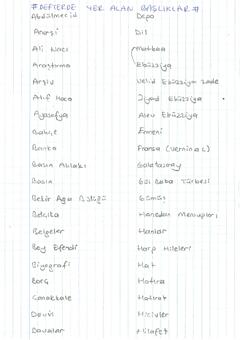 # DEFTERDE YER ALAN BAŞLIKLAR #
Abdülmecid
Anerji
Ali Naci
Araştırma
Arşiv
Atıf Hoca
Ayasofya
Bahçe
Banka
Basın Ahlakı
Basın
Bekir Ağa Bölüğü
Belçika
Belgeler
Bey Efendi
Biyografi
Borç
Çanakkale
Davalar
Depo
Dil
Matbaa
Ebüzziya
Velid Ebüzziya zade
Ziyad Ebüzziya
Alev Ebüzziya
Ermeni
Fransa
Galatasaray
Gül Baba Türbesi
Gümüş
Hanedan Mensupları
Hanlar
Harp Hileleri
Hat
Hatıra
Hatırat
Hicivler
Hilafet